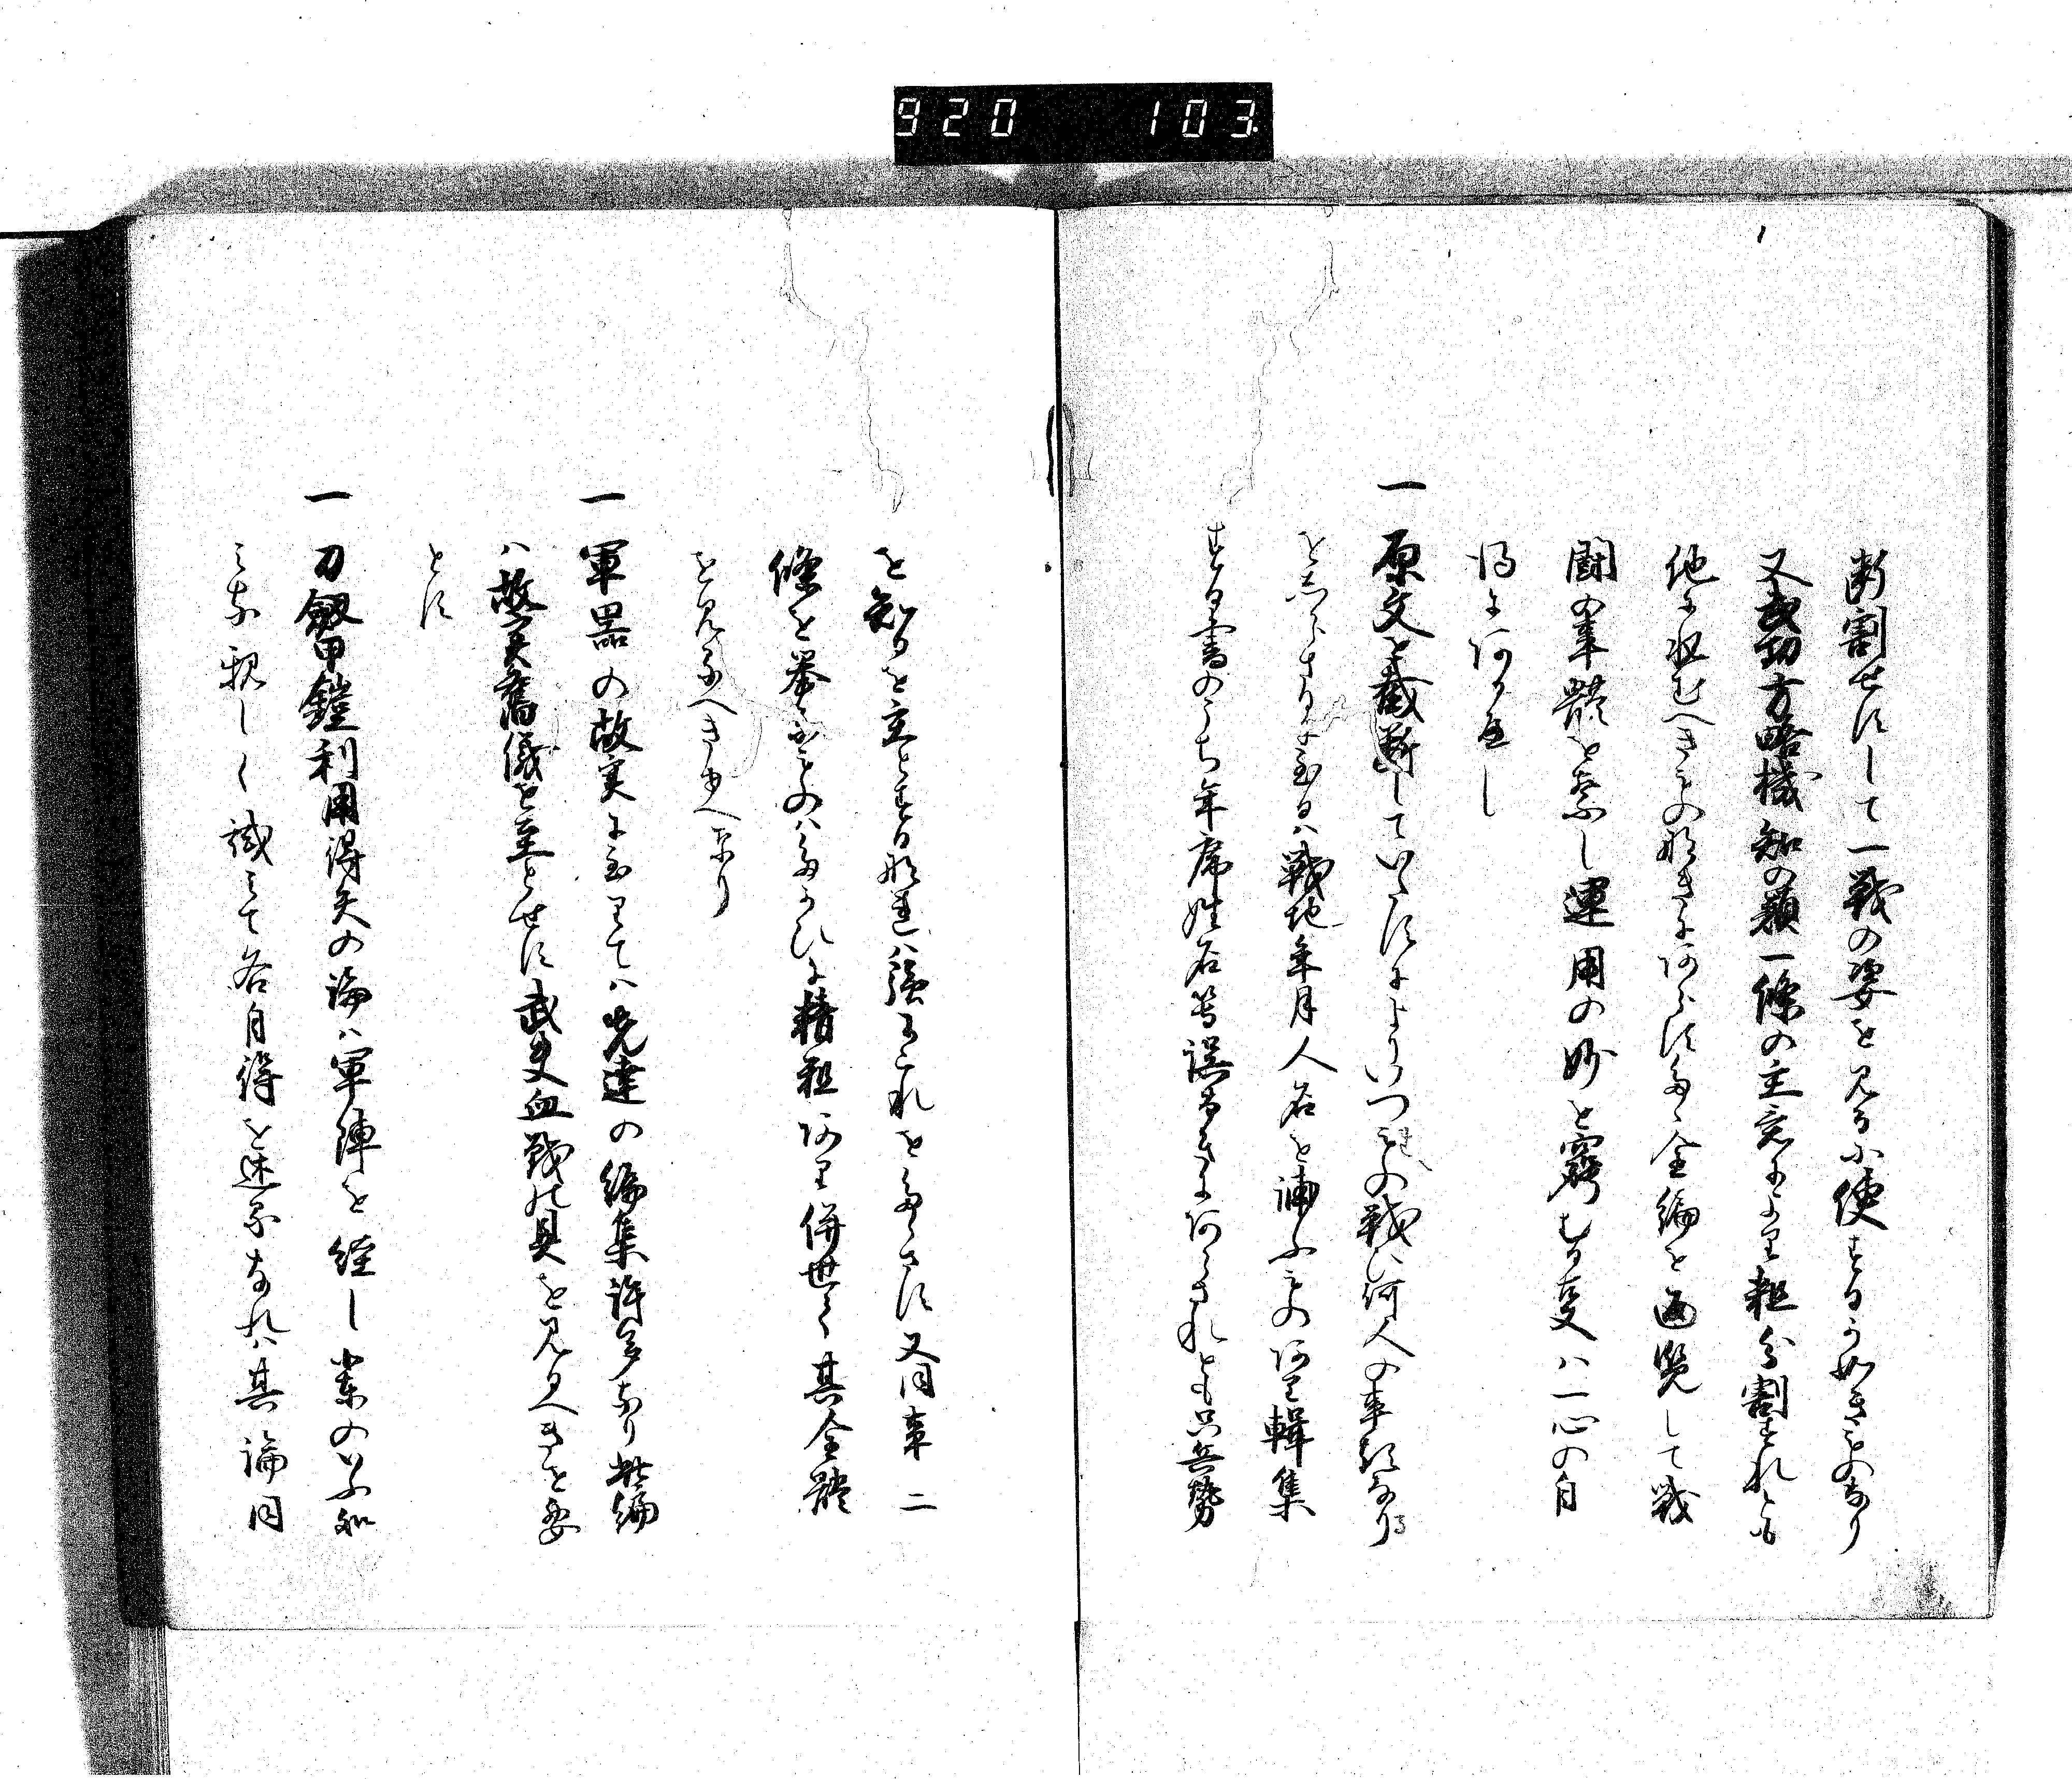 920 103
断割せすして一戦の姿を見るに便するか如きものなり
又武功方略機知の類一條の主意により粗分割すれとも
他に収むへきもの所きにあらす多く全編を通覧して戦
闘の事體を察し運用の妙を窮むる事ハ一心の自
得にあるへし
一原文を截断していたすによりいつもの戦ひ何人の事記なり
をしらさるに至るハ戦地年月人名を補ふものあり輯集
する書のうち年席姓名等誤なきにあらされとも只兵勢
を知るを主とする所遠ハ強てこれをたゝさす又同事二
條を挙るものハたかひに精粗あり併世て其全體
を見るへきゆへなり
一軍器の故実に至りてハ先達の編集許多なり此編
ハ故実舊儀を主とせす武夫血戦の具を見るへきを要
とす
一刀劔甲鎧利用得失の論ハ軍陣を経し輩のいふ処
みな親しく試みて各自得を述るなれハ其論同